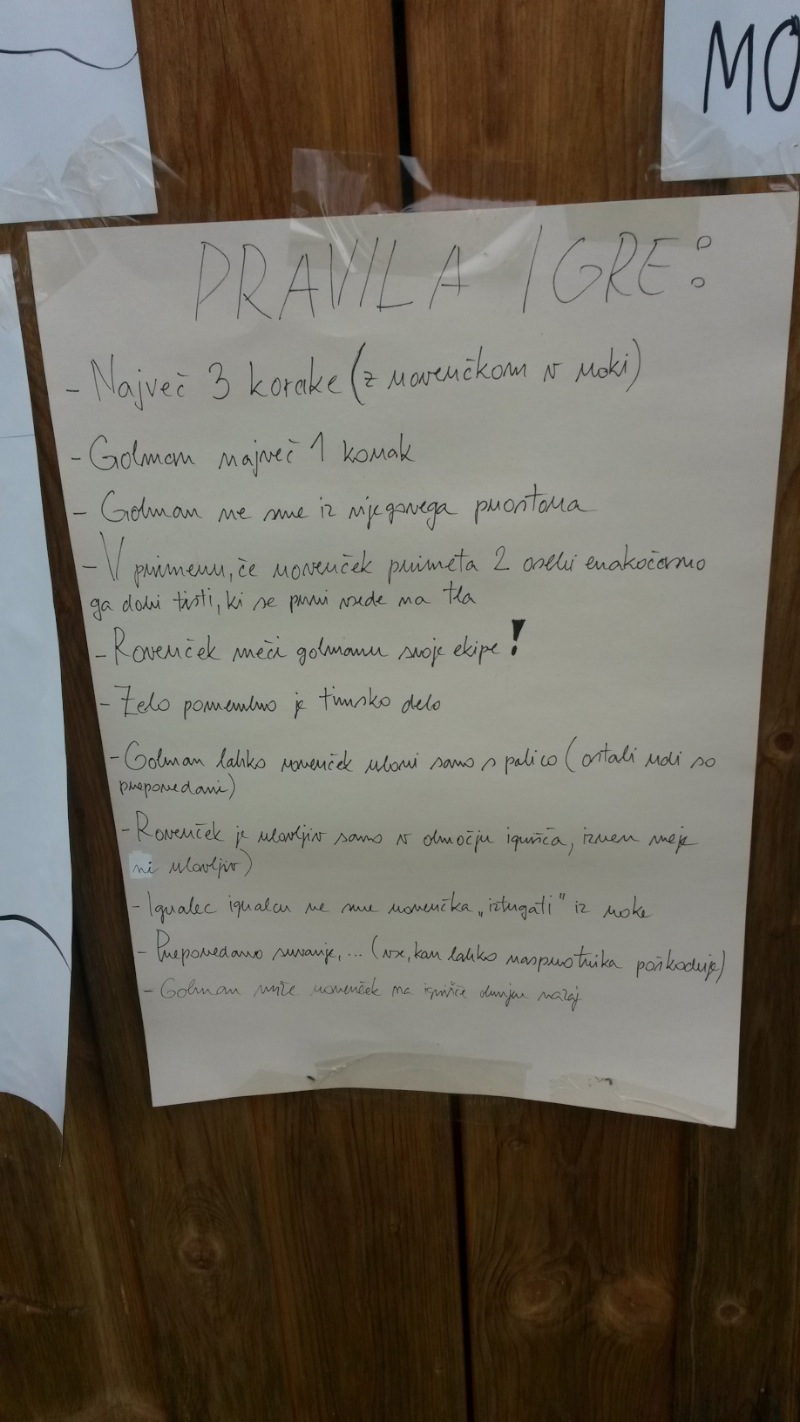 MO
PRAVILA IGRE:
- Največ 3 korake (z rovenčkom v roki)
- Golman največ 1 korak
- Golman ne sme iz njegovega prostora
- V primeru, če rovenček primeta 2 osebi enakočasno
ga dobi tisti, ki se prvi vsede na tla
- Rovenček meči golmanu svoje ekipe!
- Zelo pomembno je timsko delo
- Golman lahko rovenček ulovi samo s palico (ostali udi so
prepovedani)
- Rovenček je ulovljiv samo v območju igrišča, izven meje
ni ulovljiv)
- Igralec igralcu ne sme rovenčka „iztrgati" iz roke
- Prepovedano suvanje,... (vse, kar lahko nasprotnika poškoduje)
- Golman vrže rovenček na igrišče nazaj